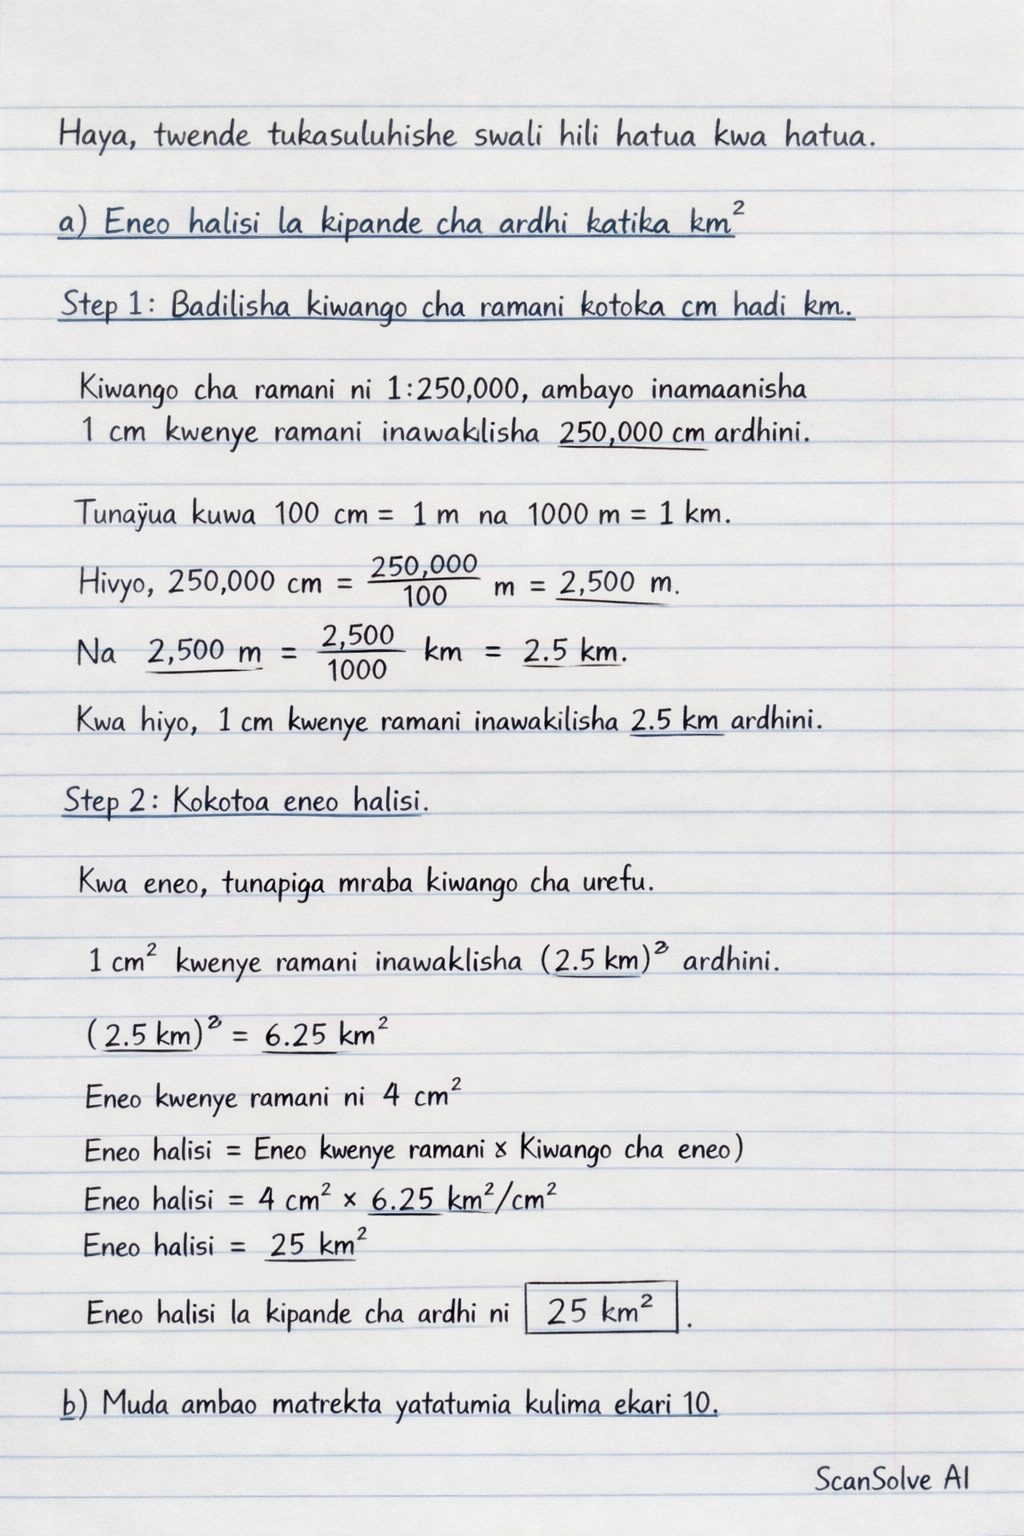 Haya, twende tukasuluhishe swali hili hatua kwa hatua.
a) Eneo halisi la kipande cha ardhi katika km²
Step 1: Badilisha kiwango cha ramani kotoka cm hadi km.
Kiwango cha ramani ni 1:250,000, ambayo inamaanisha
1 cm kwenye ramani inawaklisha 250,000 cm ardhini.
Tunaÿua kuwa 100 cm = 1 m na 1000 m = 1 km.
Hivyo, 250,000 cm = 250,000/100 m = 2,500 m.
Na 2,500 m = 2,500/1000 km = 2.5 km.
Kwa hiyo, 1 cm kwenye ramani inawakilisha 2.5 km ardhini.
Step 2: Kokotoa eneo halisi.
Kwa eneo, tunapiga mraba kiwango cha urefu.
1 cm² kwenye ramani inawaklisha (2.5 km)² ardhini.
(2.5 km)² = 6.25 km²
Eneo kwenye ramani ni 4 cm²
Eneo halisi = Eneo kwenye ramani × Kiwango cha eneo)
Eneo halisi = 4 cm² × 6.25 km²/cm²
Eneo halisi = 25 km²
Eneo halisi la kipande cha ardhi ni 25 km².
b) Muda ambao matrekta yatatumia kulima ekari 10.
ScanSolve AI